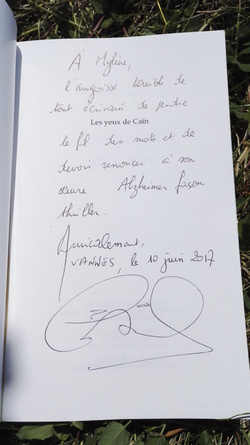 À Mylène,
l'angoisse terrible de
tout écrivain de perdre
Les yeux de Caïn
le fil des mots et de
devoir renoncer à son
œuvre. Alzheimer façon
thriller.
Amicalement,
VANNES, le 10 juin 2017